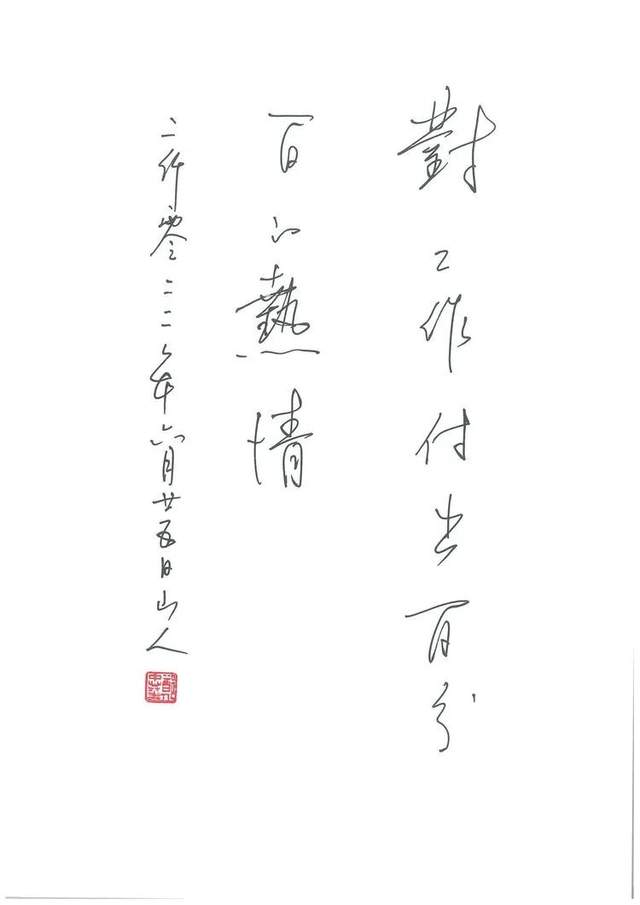 對工作付出百分
百的熱情
二仟零二二年六月廿五日山人